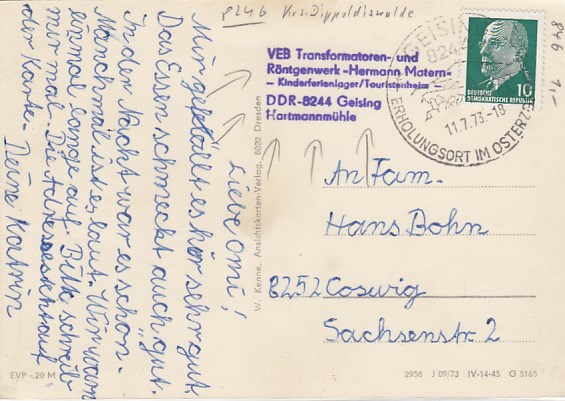 8246 Krs. Dippoldiswalde
846
1,-
VEB Transformatoren- und
Röntgenwerk -Hermann Matern-
- Kinderferienlager/Touristenheim -
DDR-8244 Geising
Hartmannmühle
GEISING
8244
11.7.73-18
ERHOLUNGSORT IM OSTERZ
10
DEUTSCHE
DEMOKRATISCHE REPUBLIK
Liebe Omi!
Mir gefällt es hir sehr gut.
Das Essen schmeckt auch gut.
In der Nacht war es schon
Manchmal ist es laut. Wir warn
einmal lange auf. Bitte schreib
mir mal. Die Adresse steht auf
der Karte. Deine Katrin
W. Kenne, Ansichtskarten-Verlag, 8020 Dresden
An Fam.
Hans Bohn
8252 Coswig
Sachsenstr. 2
EVP -,20 M
2958 J 09/73 IV-14-45 G 5165